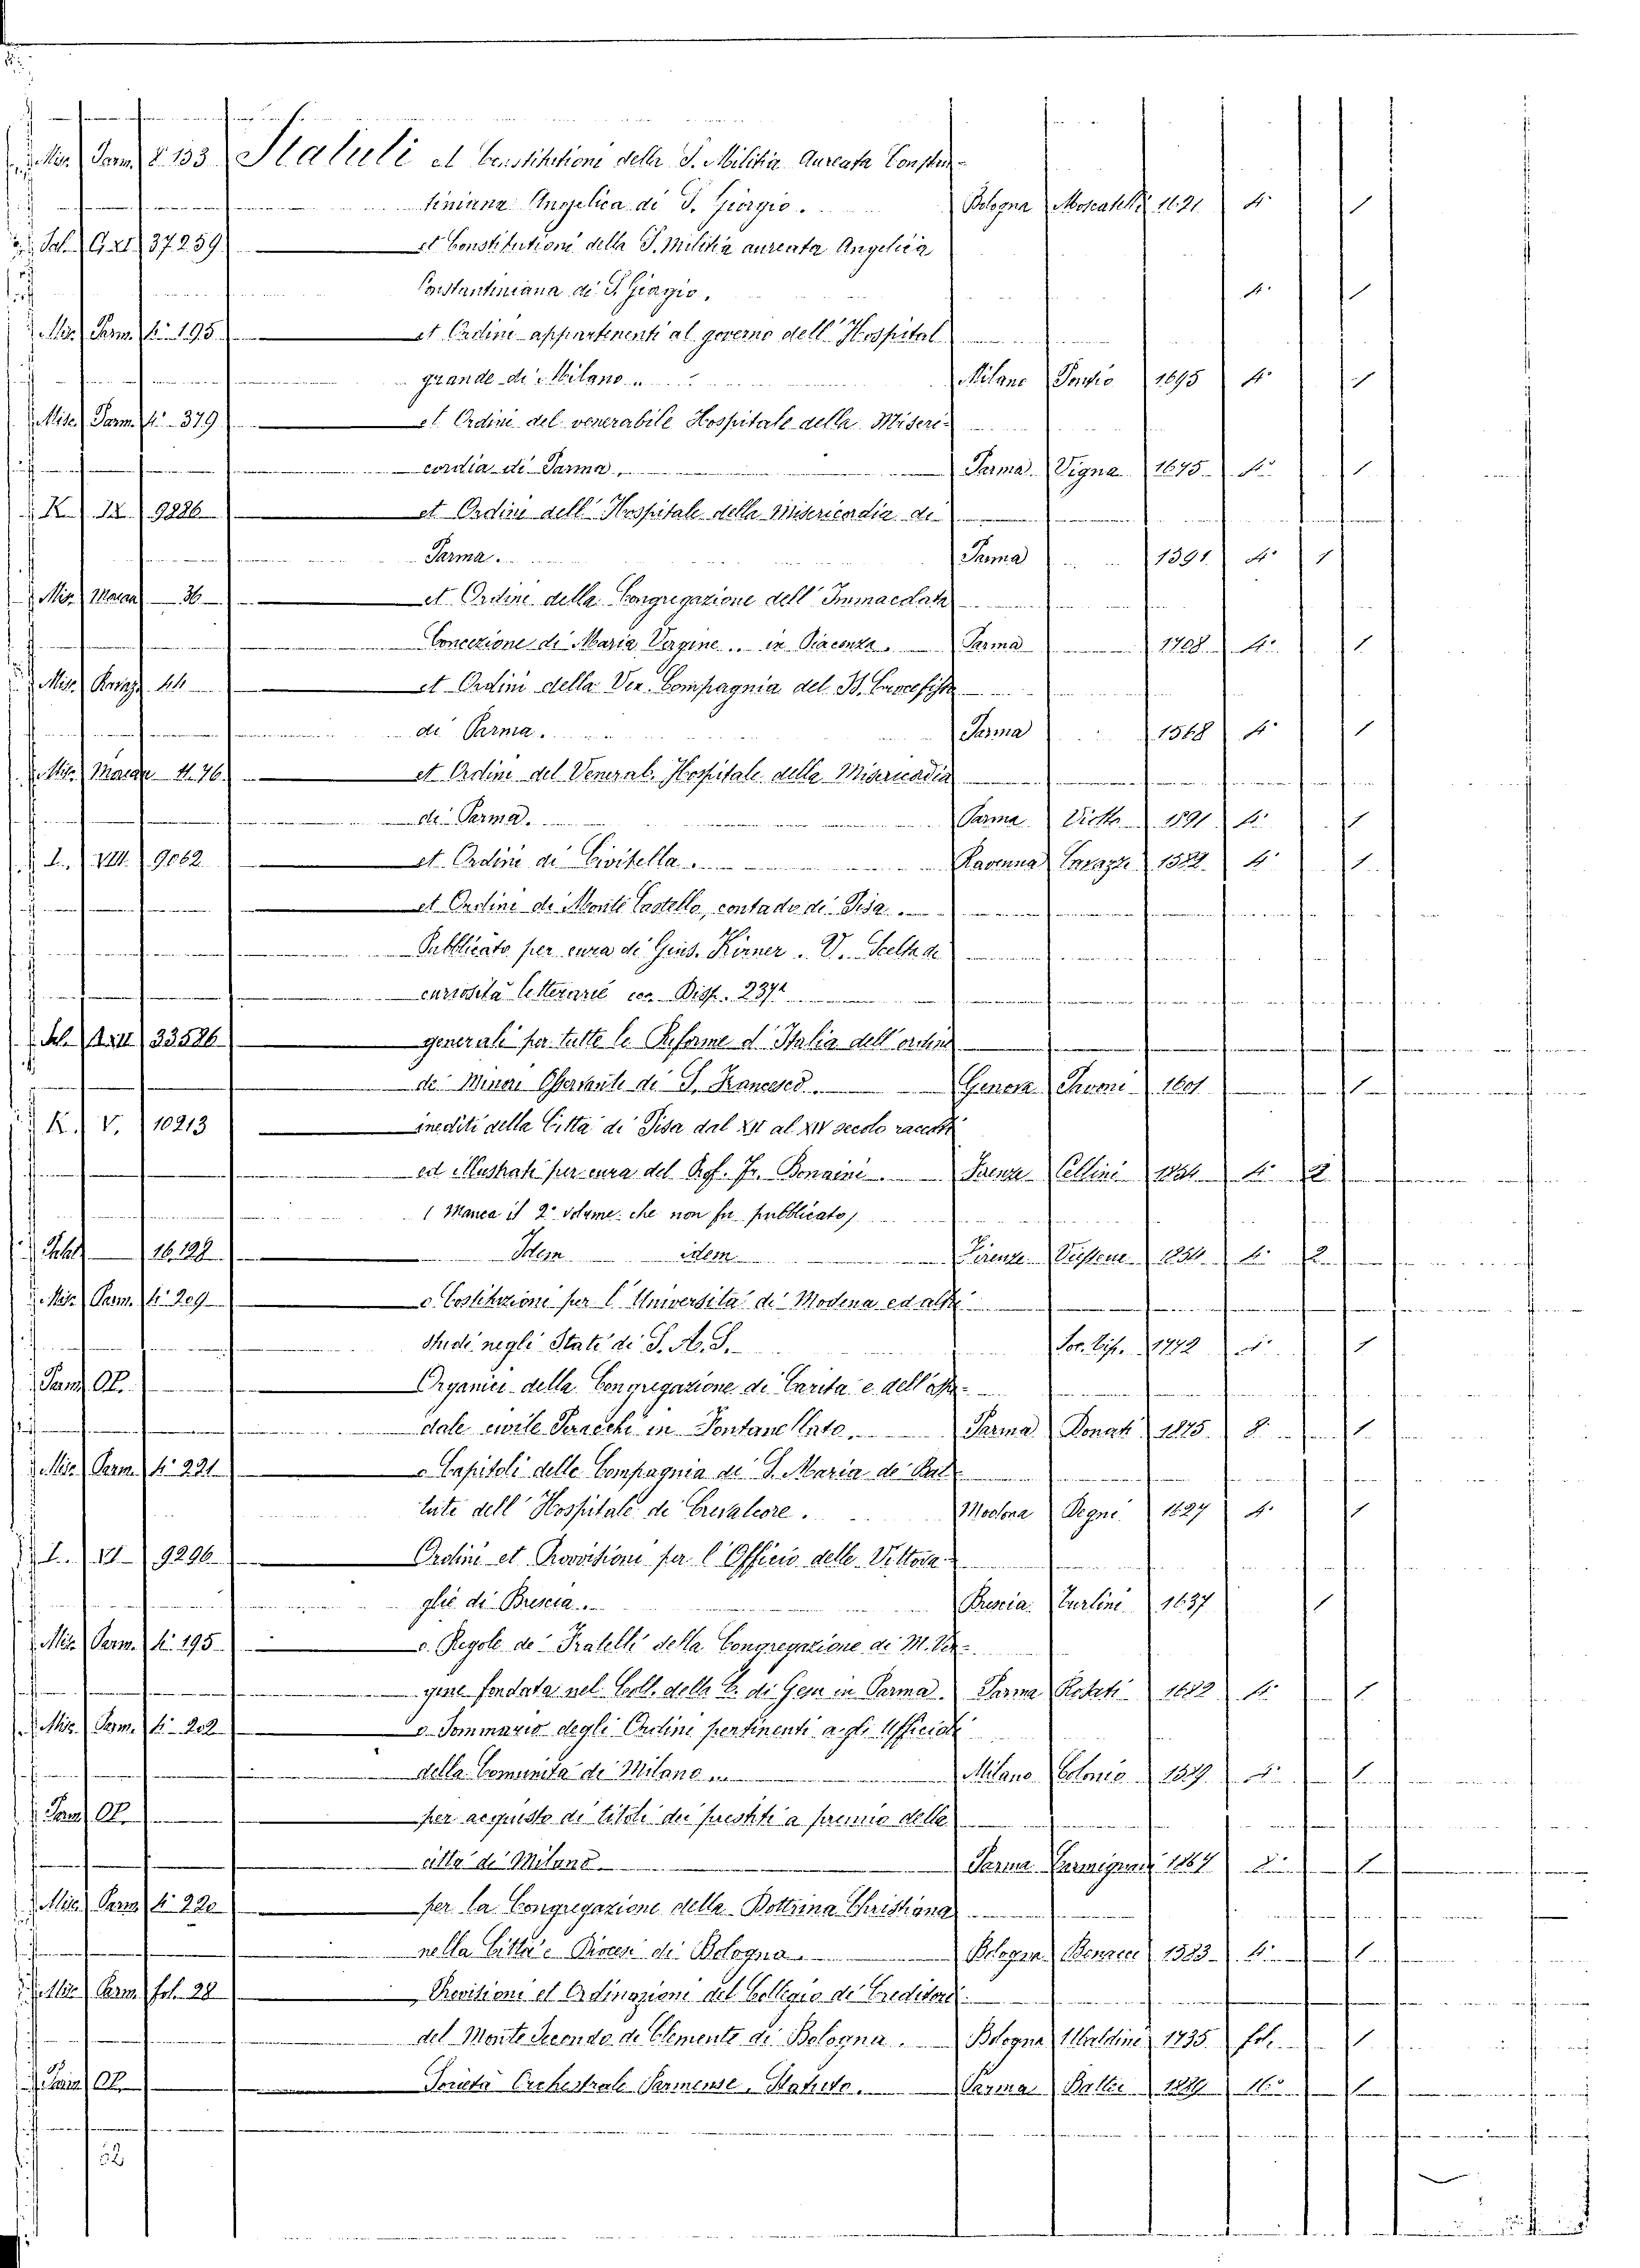 Misc. Parm. 4° 133 Statuti et Constitutioni della S. Militia Aureata Constan-
tiniana Angelica di S. Giorgio. Bologna Moscatelli 1621 4° 1
Sal. G.XI 37259 et Constitutioni della S. Militia aureata Angelica
Constantiniana di S. Giorgio. 4° 1
Misc. Parm. 4° 195 et Ordini appartenenti al governo dell' Hospital
grande di Milano Milano 1695 4° 1
Misc. Parm. 4° 379 et Ordini del venerabile Hospitale della Miseri-
cordia di Parma Parma Vigna 1675 4° 1
K. IX 9886 et Ordini dell' Hospitale della Misericordia di
Parma. Parma 1591 4° 1
Misc. 36 et Ordini della Congregazione dell' Immacolata
Concezione di Maria Vergine .. in Piacenza. Parma 1708 4° 1
Misc. 44 et Ordini della Ven. Compagnia del B. Crocefisso
di Parma. Parma 1568 4° 1
Misc. 4. 76 et Ordini del Venerab. Hospitale della Misericordia
di Parma. Parma Viotto 1591 4° 1
L. VIII. 9062 et Ordini di Civitella Ravenna 1582 4° 1
et Ordini di Monte Castello, contado di Pisa
Pubblicato per cura di Gius. Kirner. V. Scelta di
curiosità letterarie ecc. Disp. 237a
Sal. 33586 generali per tutte le Riforme d' Italia dell' ordine
de' Minori Osservanti di S. Francesco. Genova Pavoni 1601 1
K. V. 10213 inediti della Città di Pisa dal XII al XIV secolo raccolti
ed illustrati per cura del Prof. Fr. Bonaini. Firenze Cellini 1854 4° 2
(Manca il 2° volume che non fu pubblicato)
16198 Idem idem Firenze Viesseux 1854 4° 2
Misc. Parm. 4° 209 e Costituzioni per l' Università di Modena ed altri
Studi negli Stati di S. A. S. Soc. Tip. 1772 4° 1
Parm. OP. Organici della Congregazione di Carità e dell' Ospe-
dale civile Peracchi in Fontanellato. Parma Donati 1875 8° 1
Misc. Parm. 4° 221 e Capitoli delle Compagnia di S. Maria de Bat-
tuti dell' Hospitale di Crevalcore. Modona Degni 1627 4° 1
L. VI 9296 Ordini et Provisioni per l' Officio delle Vittova-
glie di Brescia Brescia Turlini 1637 1
Misc. Parm. 4° 195 o Regole de' Fratelli della Congregazione di M. Ver-
gine fondata nel Coll. della C. di Gesu in Parma. Parma Rosati 1682 4° 1
Misc. Parm. 4° 202 o Sommario degli Ordini pertinenti a gli Ufficiali
della Comunità di Milano Milano Colonio 1579 4° 1
Parm. OP. per acquisto di titoli dei prestiti a premio della
città di Milano Parma Carmignani 1867 8° 1
Misc. Parm. 4° 220 per la Congregazione della Dottrina Christiana
nella Città e Diocesi di Bologna. Bologna Benacci 1583 4° 1
Misc. Parm. fol. 28 Provisioni et Ordinazioni del Collegio de' Creditori
del Monte Secondo di Clemente di Bologna. Bologna 1735 fol. 1
Parm. OP. Società Orchestrale Parmense. Statuto. Parma Battei 16° 1
52